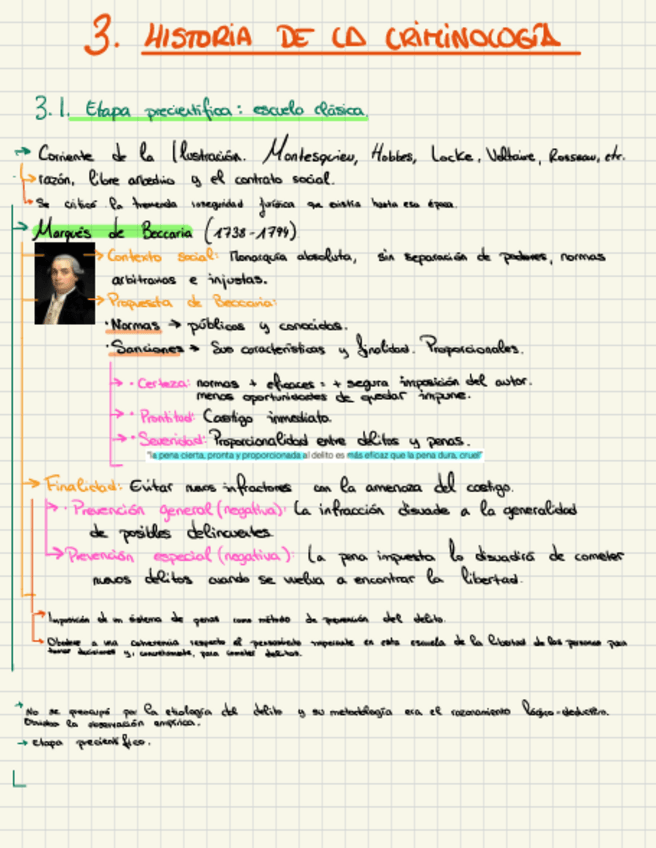 3. HISTORIA DE LA CRIMINOLOGÍA
3.1. Etapa precientífica: escuela clásica.
→ Corriente de la Ilustración. Montesquieu, Hobbes, Locke, Voltaire, Rosseau, etc.
→ razón, libre arbedrio y el contrato social.
→ Se criticó la tremenda inseguridad jurídica que existía hasta esa época.
→ Marqués de Beccaria (1738-1794)
→ Contexto social: Monarquía absoluta, sin separación de poderes, normas
arbitrarias e injustas.
→ Propuesta de Beccaria:
· Normas → públicas y conocidas.
· Sanciones → Sus características y finalidad. Proporcionales.
→ · Certeza: normas + eficaces = + segura imposición del autor.
menos oportunidades de quedar impune.
→ · Prontitud: Castigo inmediato.
→ · Severidad: Proporcionalidad entre delitos y penas.
"la pena cierta, pronta y proporcionada al delito es más eficaz que la pena dura, cruel"
→ Finalidad: Evitar nuevos infractores con la amenaza del castigo.
→ · Prevención general (negativa): La infracción disuade a la generalidad
de posibles delincuentes.
→ Prevención especial (negativa): La pena impuesta lo disuadirá de cometer
nuevos delitos cuando se vuelva a encontrar la libertad.
→ Imposición de un sistema de penas como método de prevención del delito.
→ Obedece a una coherencia respecto al pensamiento imperante en esta escuela de la libertad de las personas para
tomar decisiones y, concretamente, para cometer delitos.
→ No se preocupó por la etiología del delito y su metodología era el razonamiento lógico-deductivo.
la observación empírica.
→ etapa precientífica.